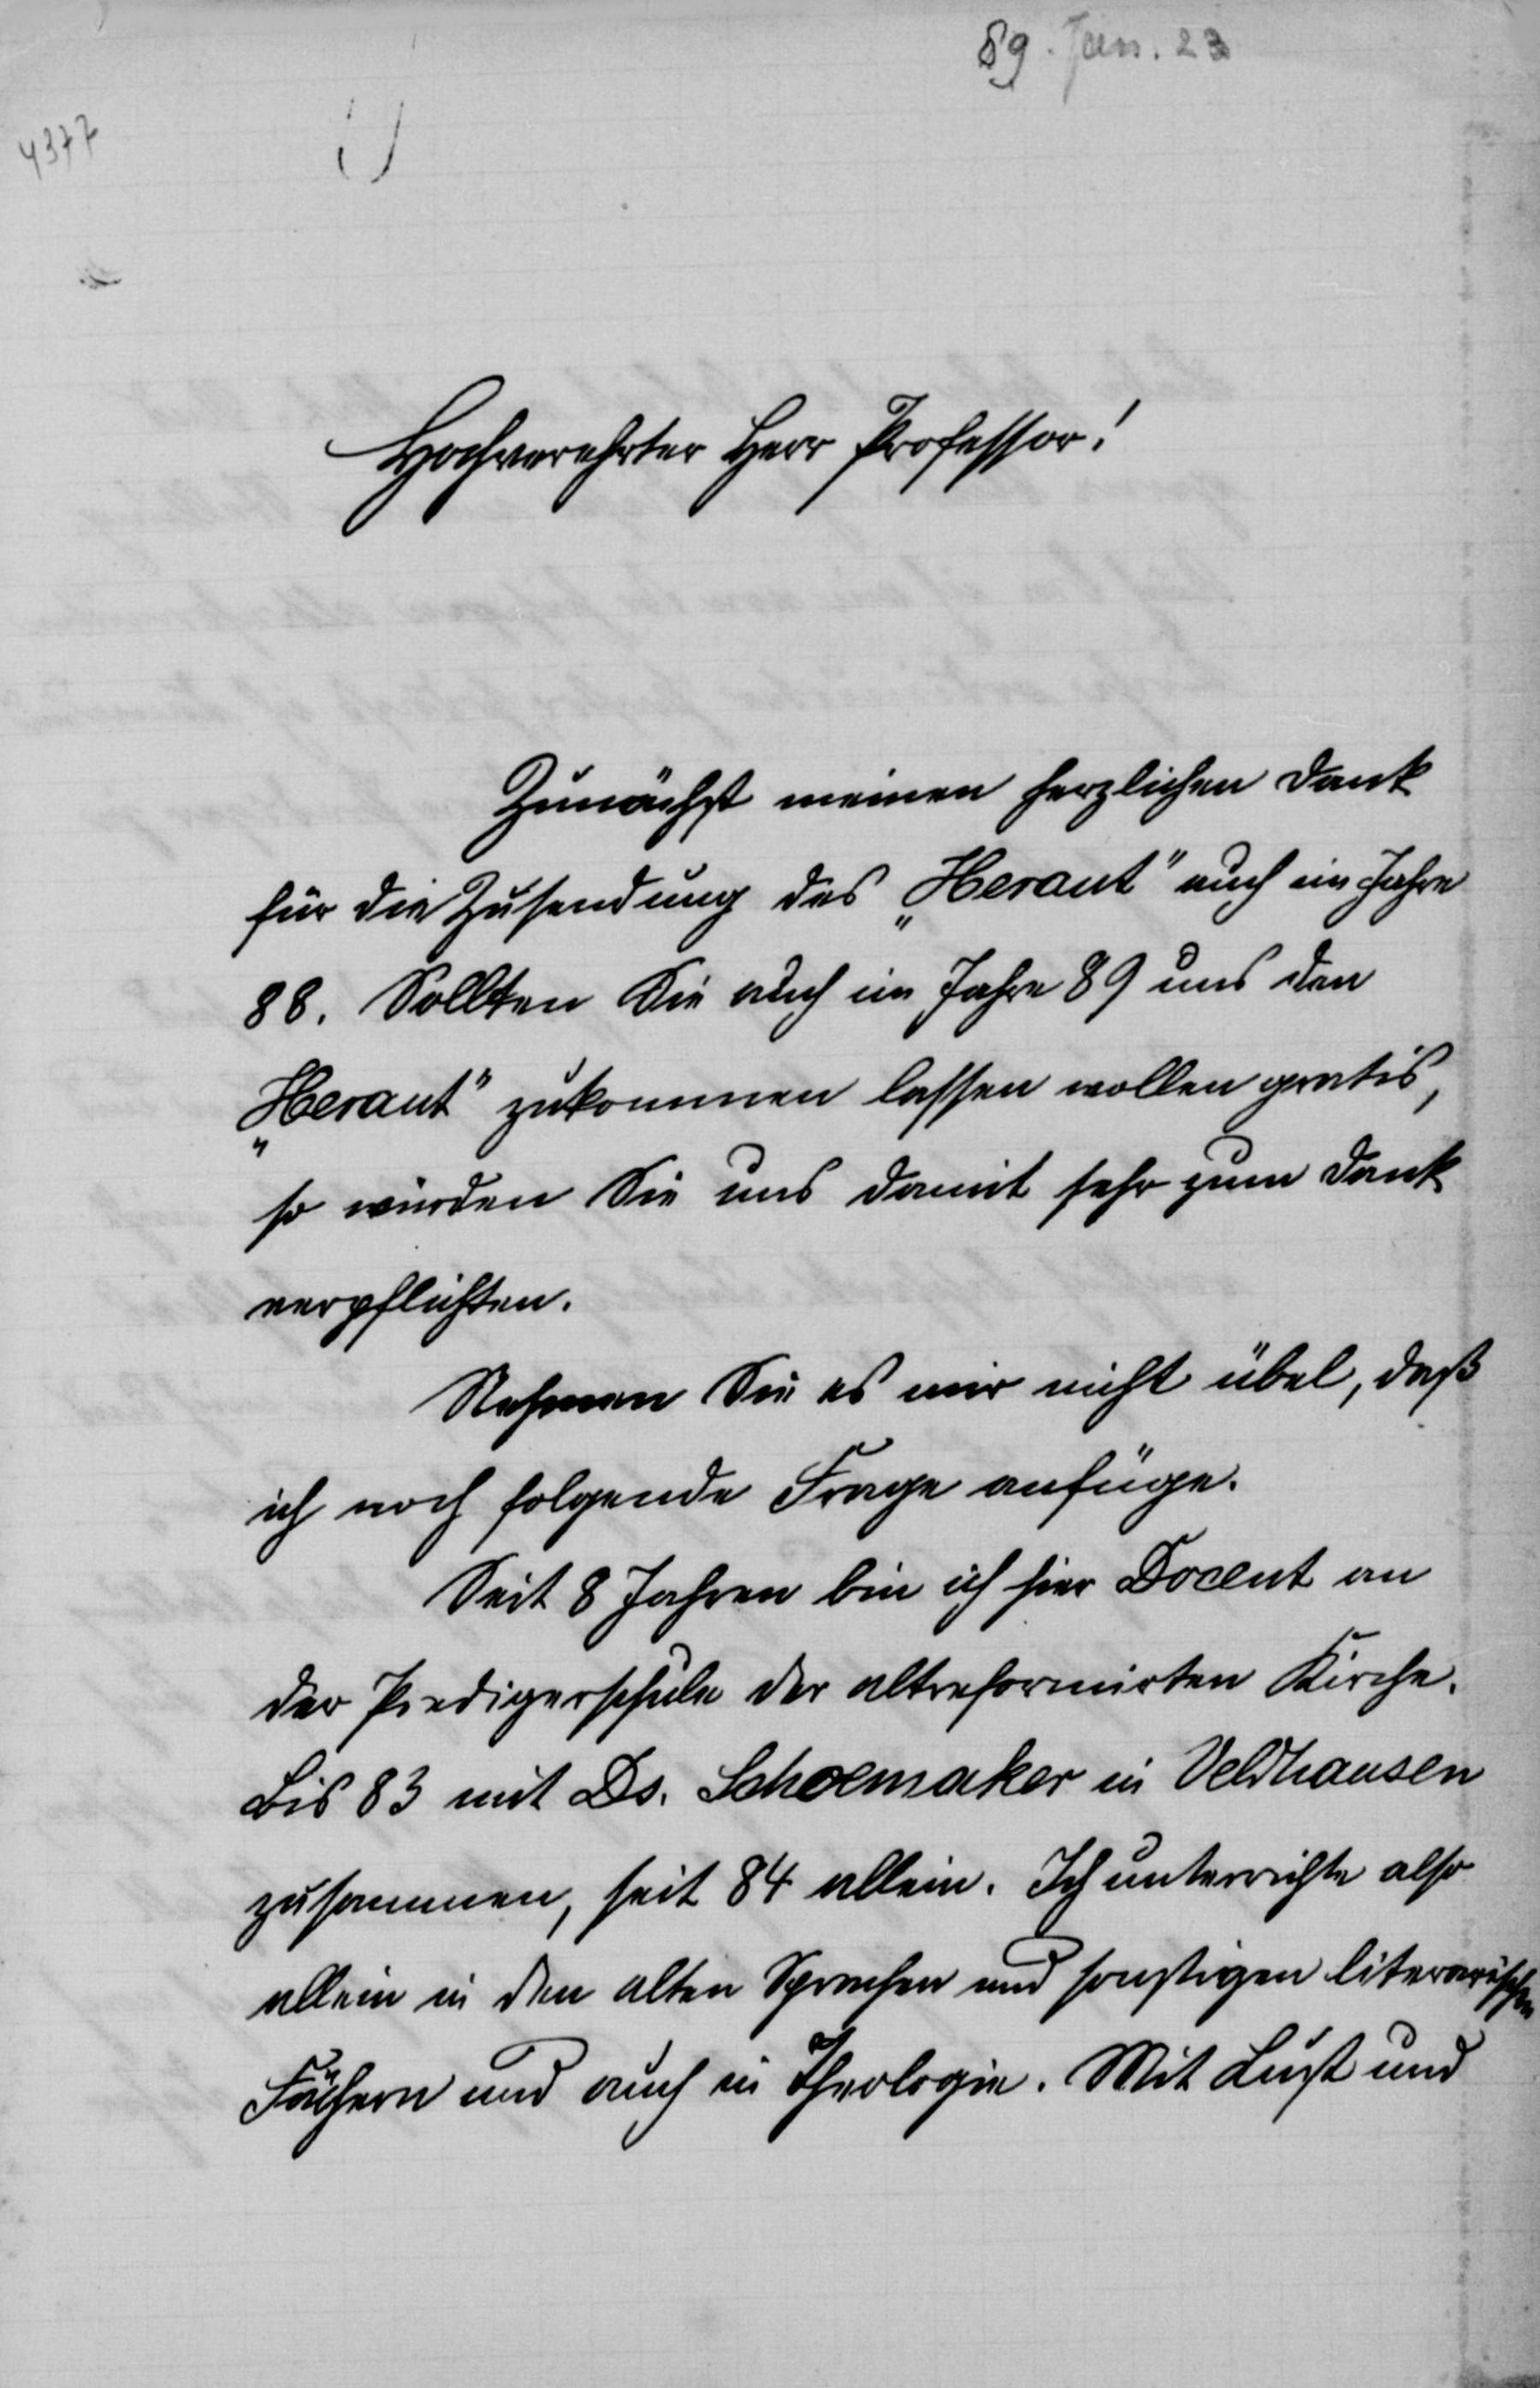 89. Jan. 23
4377
Hochverehrter Herr Professor!
Zunächst meinen herzlichen Dank
für die Zusendung des „Heraut" auch im Jahre
88. Sollten Sie auch im Jahre 89 uns den
„Heraut" zukommen lassen wollen gratis,
so würden Sie uns damit sehr zum Dank
verpflichten.
Nehmen Sie es mir nicht übel, daß
ich noch folgende Frage anfüge.
Seit 8 Jahren bin ich hier Docent an
der Predigerschule der altreformirten Kirche.
Bis 83 mit Ds. Schoemaker in Veldhausen
zusammen, seit 84 allein. Ich unterrichte also
allein in den alten Sprachen und sonstigen literarischen
Fächern und auch in Theologie. Mit Lust und